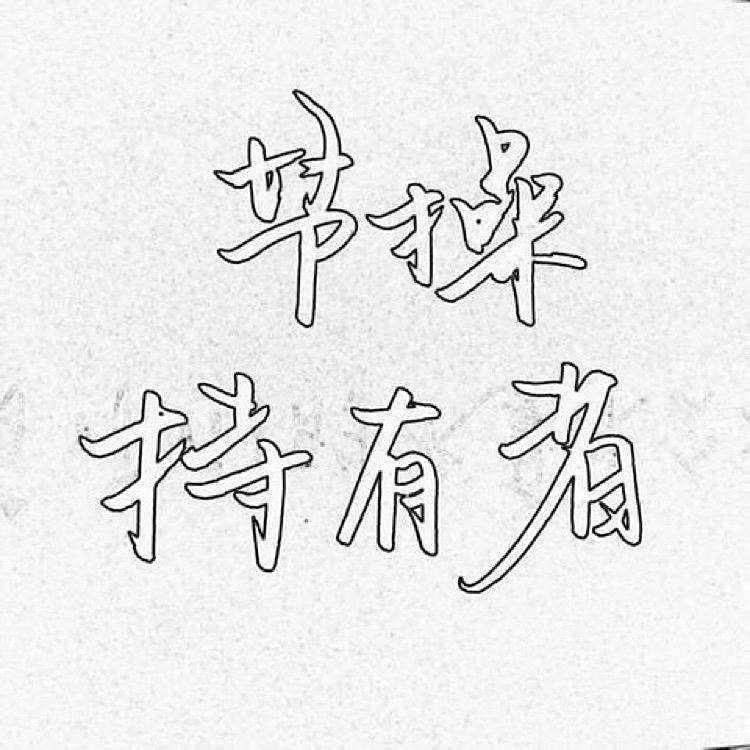 节操
持有者